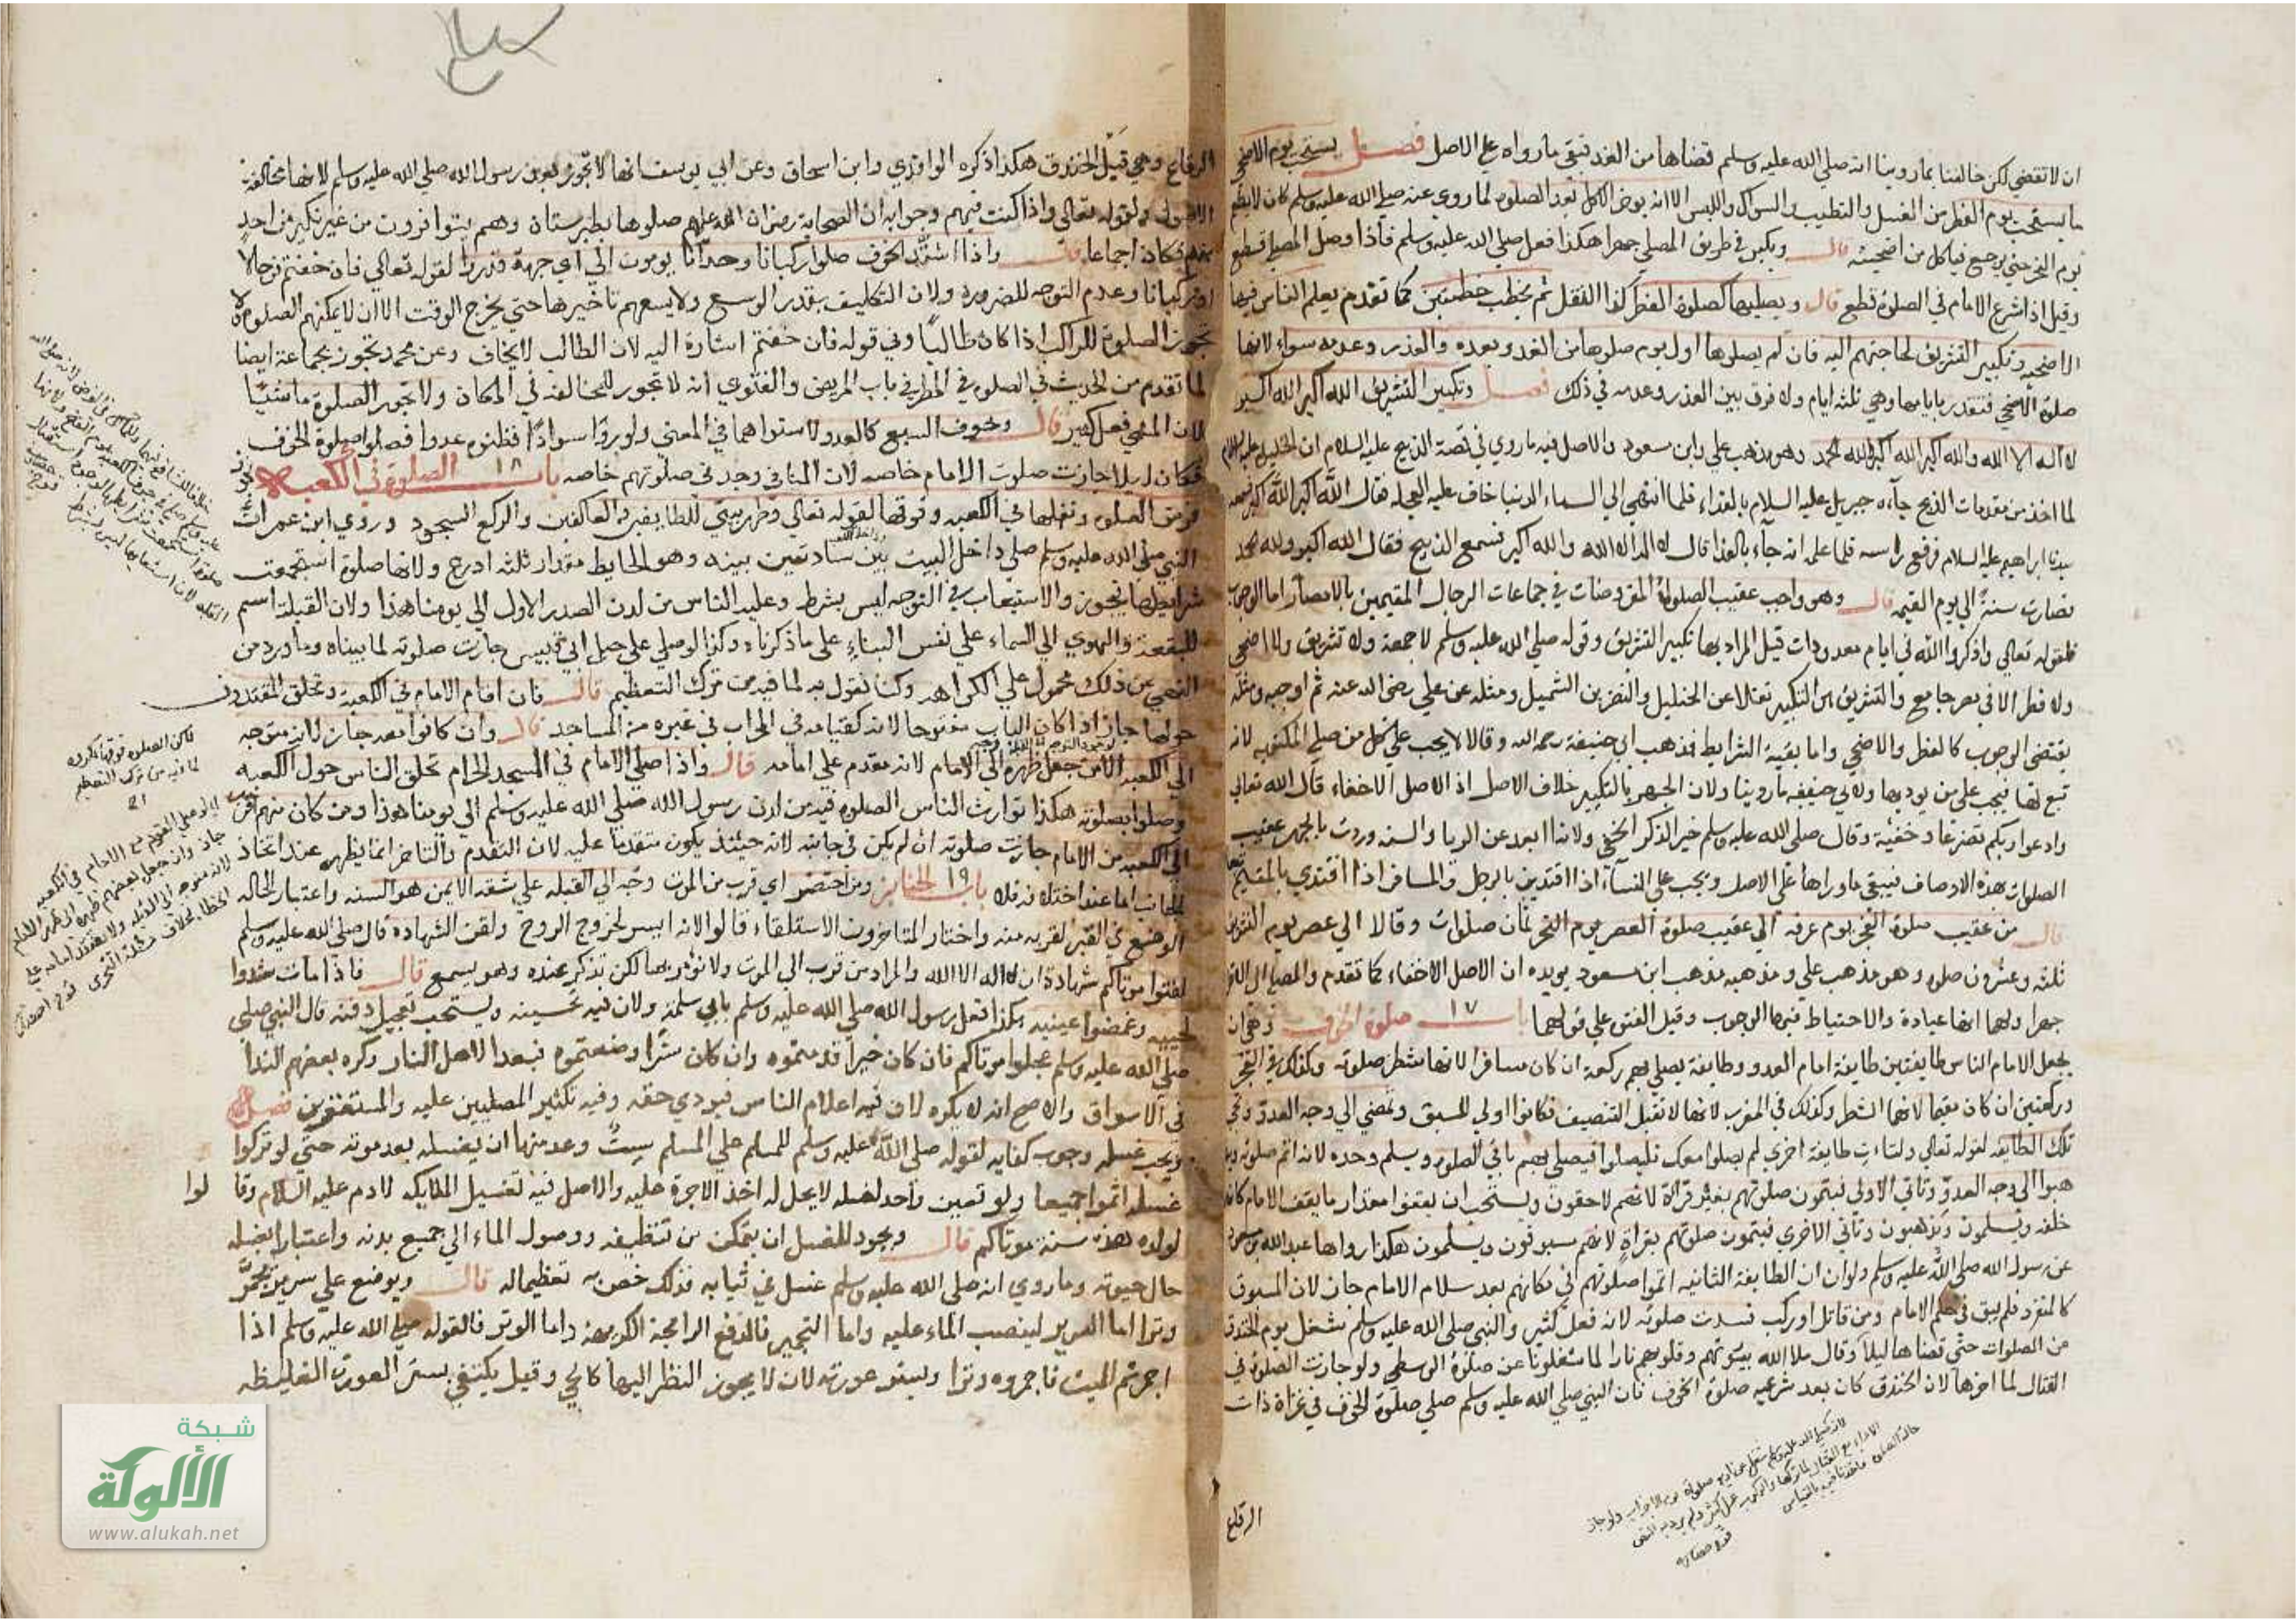 ان لا تقضي لكن خالفنا بما روينا انه صلي الله عليه وسلم قضاها من الغد فبقي ما رواه علي الاصل فصل يستحب يوم الاضحي
ما يستحب يوم الفطر من الغسل والتطيب والسواك واللبس الا انه يوخر الاكل بعد الصلوة لما روي عنه صلي الله عليه وسلم كان لا يطعم
يوم النحر حتي يرجع فياكل من اضحيته قال ويكبر في طريق المصلي جهرا هكذا فعل صلي الله عليه وسلم فاذا وصل المصلي قطع
وقيل اذا شرع الامام في الصلوة قطع قال ويصليها كصلوة الفطر كذا النقل ثم يخطب خطبتين كما تقدم يعلم الناس فيها
الاضحية وتكبير التشريق لحاجتهم اليه فان لم يصلوها اول يوم صلوها من الغد وبعده والعذر وعدمه سواء لانها
صلوة الاضحي فتقدر بايامها وهي ثلثة ايام ولا فرق بين العذر وعدمه في ذلك فصل وتكبير التشريق الله اكبر الله اكبر
لا اله الا الله والله اكبر الله اكبر ولله الحمد وهو مذهب علي وابن مسعود والاصل فيه ما روي في قصة الذبيح عليه السلام ان الخليل عليه السلام
لما اخذ من مقدمات الذبح جآءه جبريل عليه السلام بالفداء فلما انتهي الي السماء الدنيا خاف عليه العجلة فقال الله اكبر الله اكبر فسمعه
سيدنا ابراهيم عليه السلام فرفع راسه فلما علم انه جآء بالفدا قال لا اله الا الله والله اكبر فسمع الذبيح فقال الله اكبر ولله الحمد
فصارت سنة الي يوم القيمة قال وهو واجب عقيب الصلوات المفروضات في جماعات الرجال المقيمين بالامصار اما الوجوب
فلقوله تعالي واذكروا الله في ايام معدودات قيل المراد بها تكبير التشريق وقوله صلي الله عليه وسلم لا جمعة ولا تشريق ولا اضحي
ولا فطر الا في مصر جامع والتشريق هو التكبير نقلا عن الخليل والنضر بن الشميل ومثله عن علي رضي الله عنه ثم اوجبه ومثله
يقتضي الوجوب كالفطر والاضحي واما بقية الشرايط فمذهب ابي حنيفة رحمه الله وقالا لا يجب علي كل من صلي المكتوبه لانه
تبع لها فيجب علي من يوديها ولابي حنيفه ما روينا ولان الجهر بالتكبير خلاف الاصل اذ الاصل الاخفاء قال الله تعالي
وادعوا ربكم تضرعا وخفية وقال صلي الله عليه وسلم خير الذكر الخفي ولانه ابعد عن الريا والسنه وردت بالجهر عقيب
الصلوات بهذه الاوصاف فيبقي ما وراها علي الاصل ويجب علي النسآء اذا اقتدين بالرجل والمسافر اذا اقتدي بالمقيم
قال من عقيب صلوة الفجر يوم عرفه الي عقيب صلوة العصر يوم النحر ثمان صلوات وقالا الي عصر يوم التشريق
ثلثه وعشرون صلوه وهو مذهب علي ومذهبه مذهب ابن مسعود يويده ان الاصل الاخفاء كما تقدم
جهرا ولهما انها عبادة والاحتياط فيها الوجوب وقيل الفتوي علي قولهما باب ١٧ صلوة الخوف وهي ان
يجعل الامام الناس طايفتين طايفة امام العدو وطايفة يصلي بهم ركعة ان كان مسافرا لانها شطر صلوته وكذلك في الفجر
وركعتين ان كان مقيما لانهما الشطر وكذلك في المغرب لانها لا تقبل التنصيف فكانوا اولي للسبق وتمضي الي وجه العدو وتجي
تلك الطايفه لقوله تعالي ولتات طايفة اخري لم يصلوا فليصلوا معك فيصلي بهم باقي الصلوه ويسلم وحده لانه اتم صلوته
هبوا الي وجه العدو وتاتي الاولي فيتمون صلوتهم بغير قراة لانهم لاحقون ويستحب ان يقفوا مقدار ما يقف الامام كانه
خلفه ويسلمون ويذهبون وتاتي الاخري فيتمون صلوتهم بقراة لانهم مسبوقون ويسلمون هكذا رواها عبد الله بن مسعود
عن رسول الله صلي الله عليه وسلم ولو ان الطايفة الثانيه اتموا صلوتهم في مكانهم بعد سلام الامام جاز لان المسبوق
كالمنفرد فلم يبق في حكم الامام ومن قاتل او ركب فسدت صلوته لانه فعل كثير والنبي صلي الله عليه وسلم شغل يوم الخندق
من الصلوات حتي قضاها ليلا وقال ملا الله بيوتهم وقلوبهم نارا لما شغلونا عن صلوة الوسطي ولو جازت الصلوة في
القتال لما اخرها لان الخندق كان بعد شرعيه صلوة الخوف فان النبي صلي الله عليه وسلم صلي صلوة الخوف في غزاة ذات
الرقاع
الرقاع وهي قبل الخندق هكذا ذكره الواقدي وابن اسحاق وعن ابي يوسف انها لا تجوز بعد رسول الله صلي الله عليه وسلم لانها مخالفة
الاصول ولقوله تعالي واذا كنت فيهم وجوابه ان الصحابة رضوان الله عليهم صلوها بطبرستان وهم متوافرون من غير نكير من احد
منهم فكان اجماعا قال واذا اشتد الخوف صلوا ركبانا وحدانا يومون الي اي جهة قدروا لقوله تعالي فان خفتم فرجالا
او ركبانا وعدم التوجه للضرورة ولان التكليف بقدر الوسع ولا يسعهم تاخيرها حتي يخرج الوقت الا ان لا يمكنهم الصلوة ولا
تجوز الصلوة للراكب اذا كان طالبا وفي قوله فان خفتم اشارة اليه لان الطالب لا يخاف وعن محمد تجوز بجماعة ايضا
لما تقدم من الحديث في الصلوه في المطر في باب المريض والفتوي انه لا تجوز للمخالفه في المكان ولا تجوز الصلوة ماشيا
لان المشي فعل كثير قال وخوف السبع كالعدو لاستواهما في المعني ولو راوا سوادا فظنوه عدوا فصلوا صلوة الخوف
فكان ابلا جازت صلوت الامام خاصه لان المنافي وجد في صلوتهم خاصه باب ١٨ الصلوة في الكعبه يجوز
فرض الصلوه ونفلها في الكعبه وفوقها لقوله تعالي وطهر بيتي للطايفين والعاكفين والركع السجود وروي ابن عمر ان
النبي صلي الله عليه وسلم صلي داخل البيت بين ساريتين بينه وبين الحايط مقدار ثلثه اذرع ولانها صلوة استجمعت
شرايطها فتجوز والاستيعاب في التوجه ليس بشرط وعليه الناس من لدن الصدر الاول الي يومنا هذا ولان القبلة اسم
للبقعة والهوي الي السماء علي نفس البناء علي ما ذكرناه وكذا لو صلي علي جبل ابي قبيس جازت صلوته لما بيناه وما ورد من
النهي عن ذلك محمول علي الكراهه وكذا نقول به لما فيه من ترك التعظيم قال فان اقام الامام في الكعبة وتحلق المقتدون
حولها جاز اذا كان الباب مفتوحا لانه كقيامه في المحراب في غيره من المساجد قال وان كانوا معه جاز لانه متوجه
الي الكعبه الا من جعل ظهره الي الامام لانه مقدم علي امامه قال واذا صلي الامام في المسجد الحرام تحلق الناس حول الكعبه
وصلوا بصلوته هكذا توارث الناس الصلوه فيه من لدن رسول الله صلي الله عليه وسلم الي يومنا هذا ومن كان منهم اقرب
الي الكعبه من الامام جازت صلوته ان لم يكن في جانبه لانه حينئذ يكون متقدما عليه لان التقدم والتاخر انما يظهر عند اتحاد
الجانب اما عند اختلافه فلا باب ١٩ الجنايز ومن احتضر اي قرب من الموت وجه الي القبله علي شقه الايمن هو السنه واعتبار لحاله
الوضع في القبر لقربه منه واختار المتاخرون الاستلقاء قالوا لانه ايسر لخروج الروح ولقن الشهاده قال صلي الله عليه وسلم
لقنوا موتاكم شهادة ان لا اله الا الله والمراد من قرب الي الموت ولا يومر بها لكن تذكر عنده وهو يسمع قال فاذا مات شدوا
لحييه وغمضوا عينيه هكذا فعل رسول الله صلي الله عليه وسلم بابي سلمة ولان فيه تحسينه ويستحب تعجيل دفنه قال النبي صلي
صلي الله عليه وسلم عجلوا موتاكم فان كان خيرا قدمتموه وان كان شرا وضعتموه فبعدا لاهل النار وكره بعضهم الندا
في الاسواق والاصح انه لا يكره لان فيه اعلام الناس فيودي حقه وفيه تكثير المصليين عليه والمستغفرين فصل
ويجب غسله وجوب كفايه لقوله صلي الله عليه وسلم للمسلم علي المسلم ست وعد منها ان يغسله بعد موته حتي لو تركوا
غسله اثموا جميعا ولو تعين واحد لغسله لا يحل له اخذ الاجرة عليه والاصل فيه تغسيل الملايكه لادم عليه السلام وقا لوا
لولده هذه سنة موتاكم قال ويجرد للغسل ان يتمكن من تنظيفه ووصول الماء الي جميع بدنه واعتبارا بغسله
حال حيوته وما روي انه صلي الله عليه وسلم غسل في ثيابه فذلك خص به تعظيما له قال ويوضع علي سرير مجمر
وترا اما السرير لينصب الماء عليه واما التجمير فالدفع الرايحة الكريهه واما الوتر فالقوله صلي الله عليه وسلم اذا
اجمرتم الميت فاجمروه وترا ويستر عورته لان لا يجوز النظر اليها كالحي وقيل يكتفي بستر العورة الغليظه
لكن الصلوه فوقها تكره
لما فيه من ترك التعظيم
شبكة
الألوكة
www.alukah.net